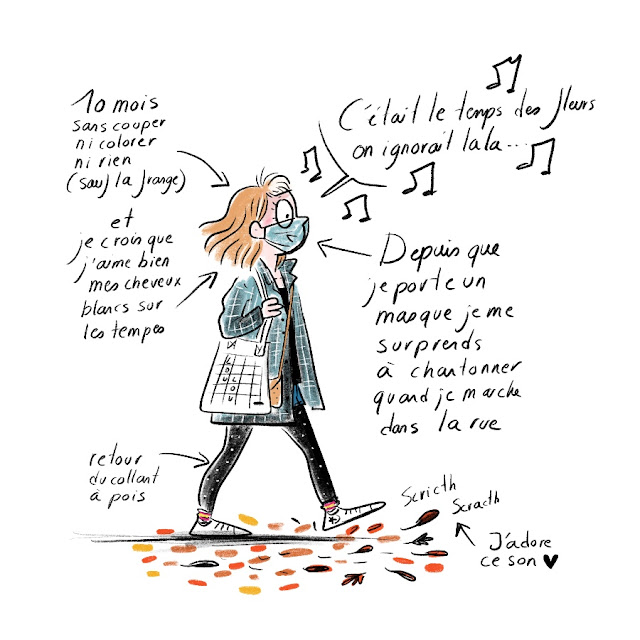 10 mois
sans couper
ni colorer
ni rien
(sauf la frange)
et
je crois que
j'aime bien
mes cheveux
blancs sur
les tempes
C'était le temps des fleurs
on ignorait lala...
Depuis que
je porte un
masque je me
surprends
à chantonner
quand je marche
dans la rue
retour
du collant
à pois
Scritch
Scratch
J'adore
ce son ♥